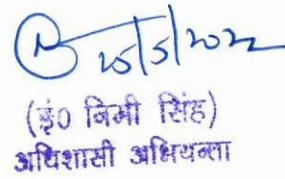 25/5/2022
(इं0 निमी सिंह)
अधिशासी अभियन्ता